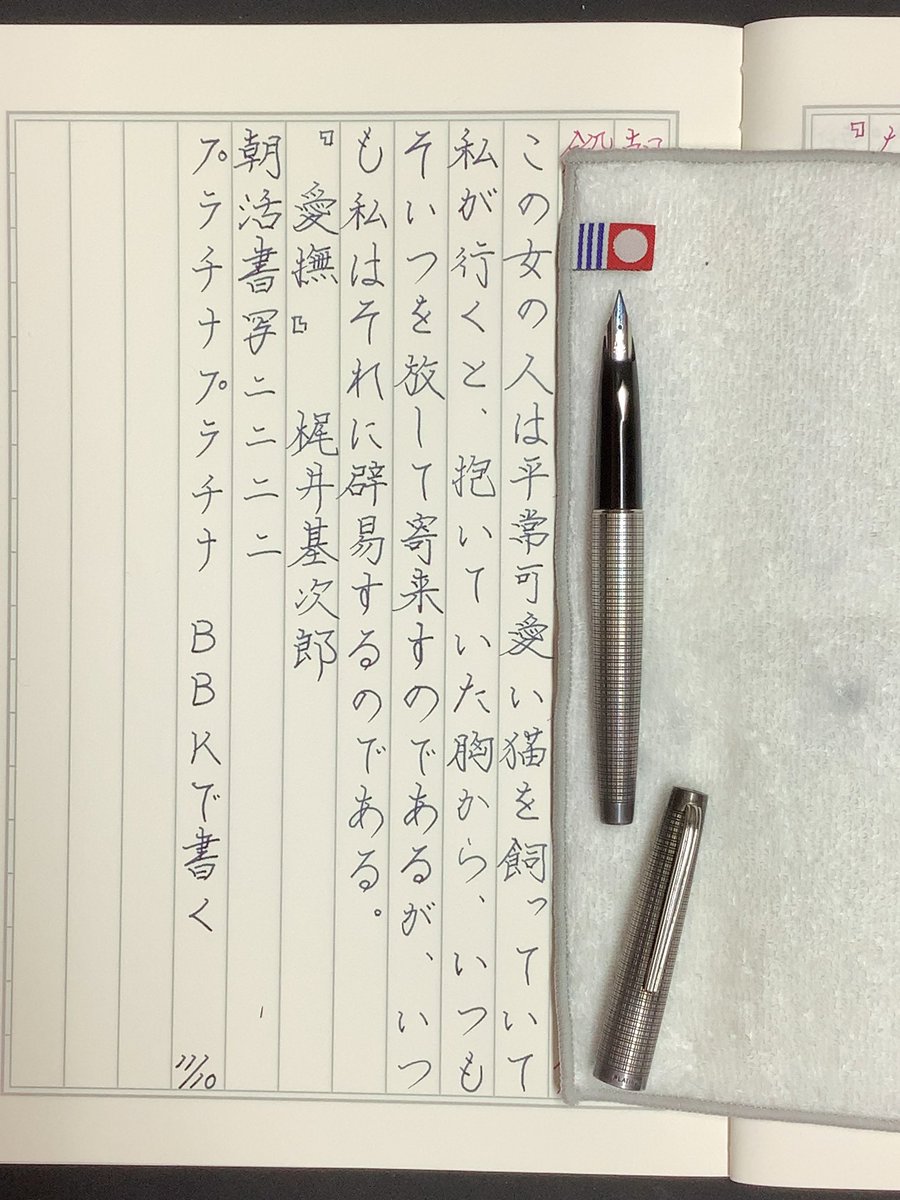 この女の人は平常可愛い猫を飼っていて
私が行くと、抱いていた胸から、いつも
そいつを放して寄来すのであるが、いつ
も私はそれに辟易するのである。
『愛撫』 梶井基次郎
朝活書写二二二二
プラチナプラチナ BBKで書く
11/10